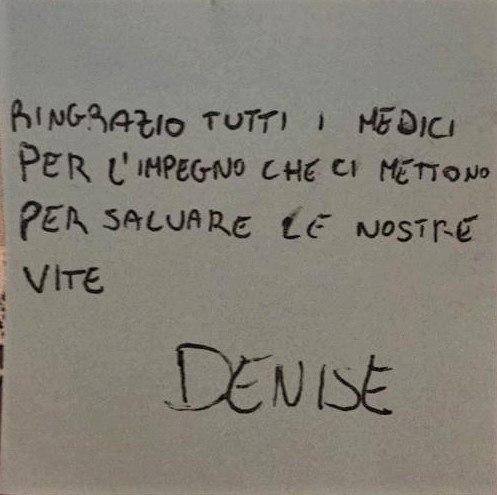 RINGRAZIO TUTTI I MEDICI
PER L'IMPEGNO CHE CI METTONO
PER SALVARE LE NOSTRE
VITE
DENISE